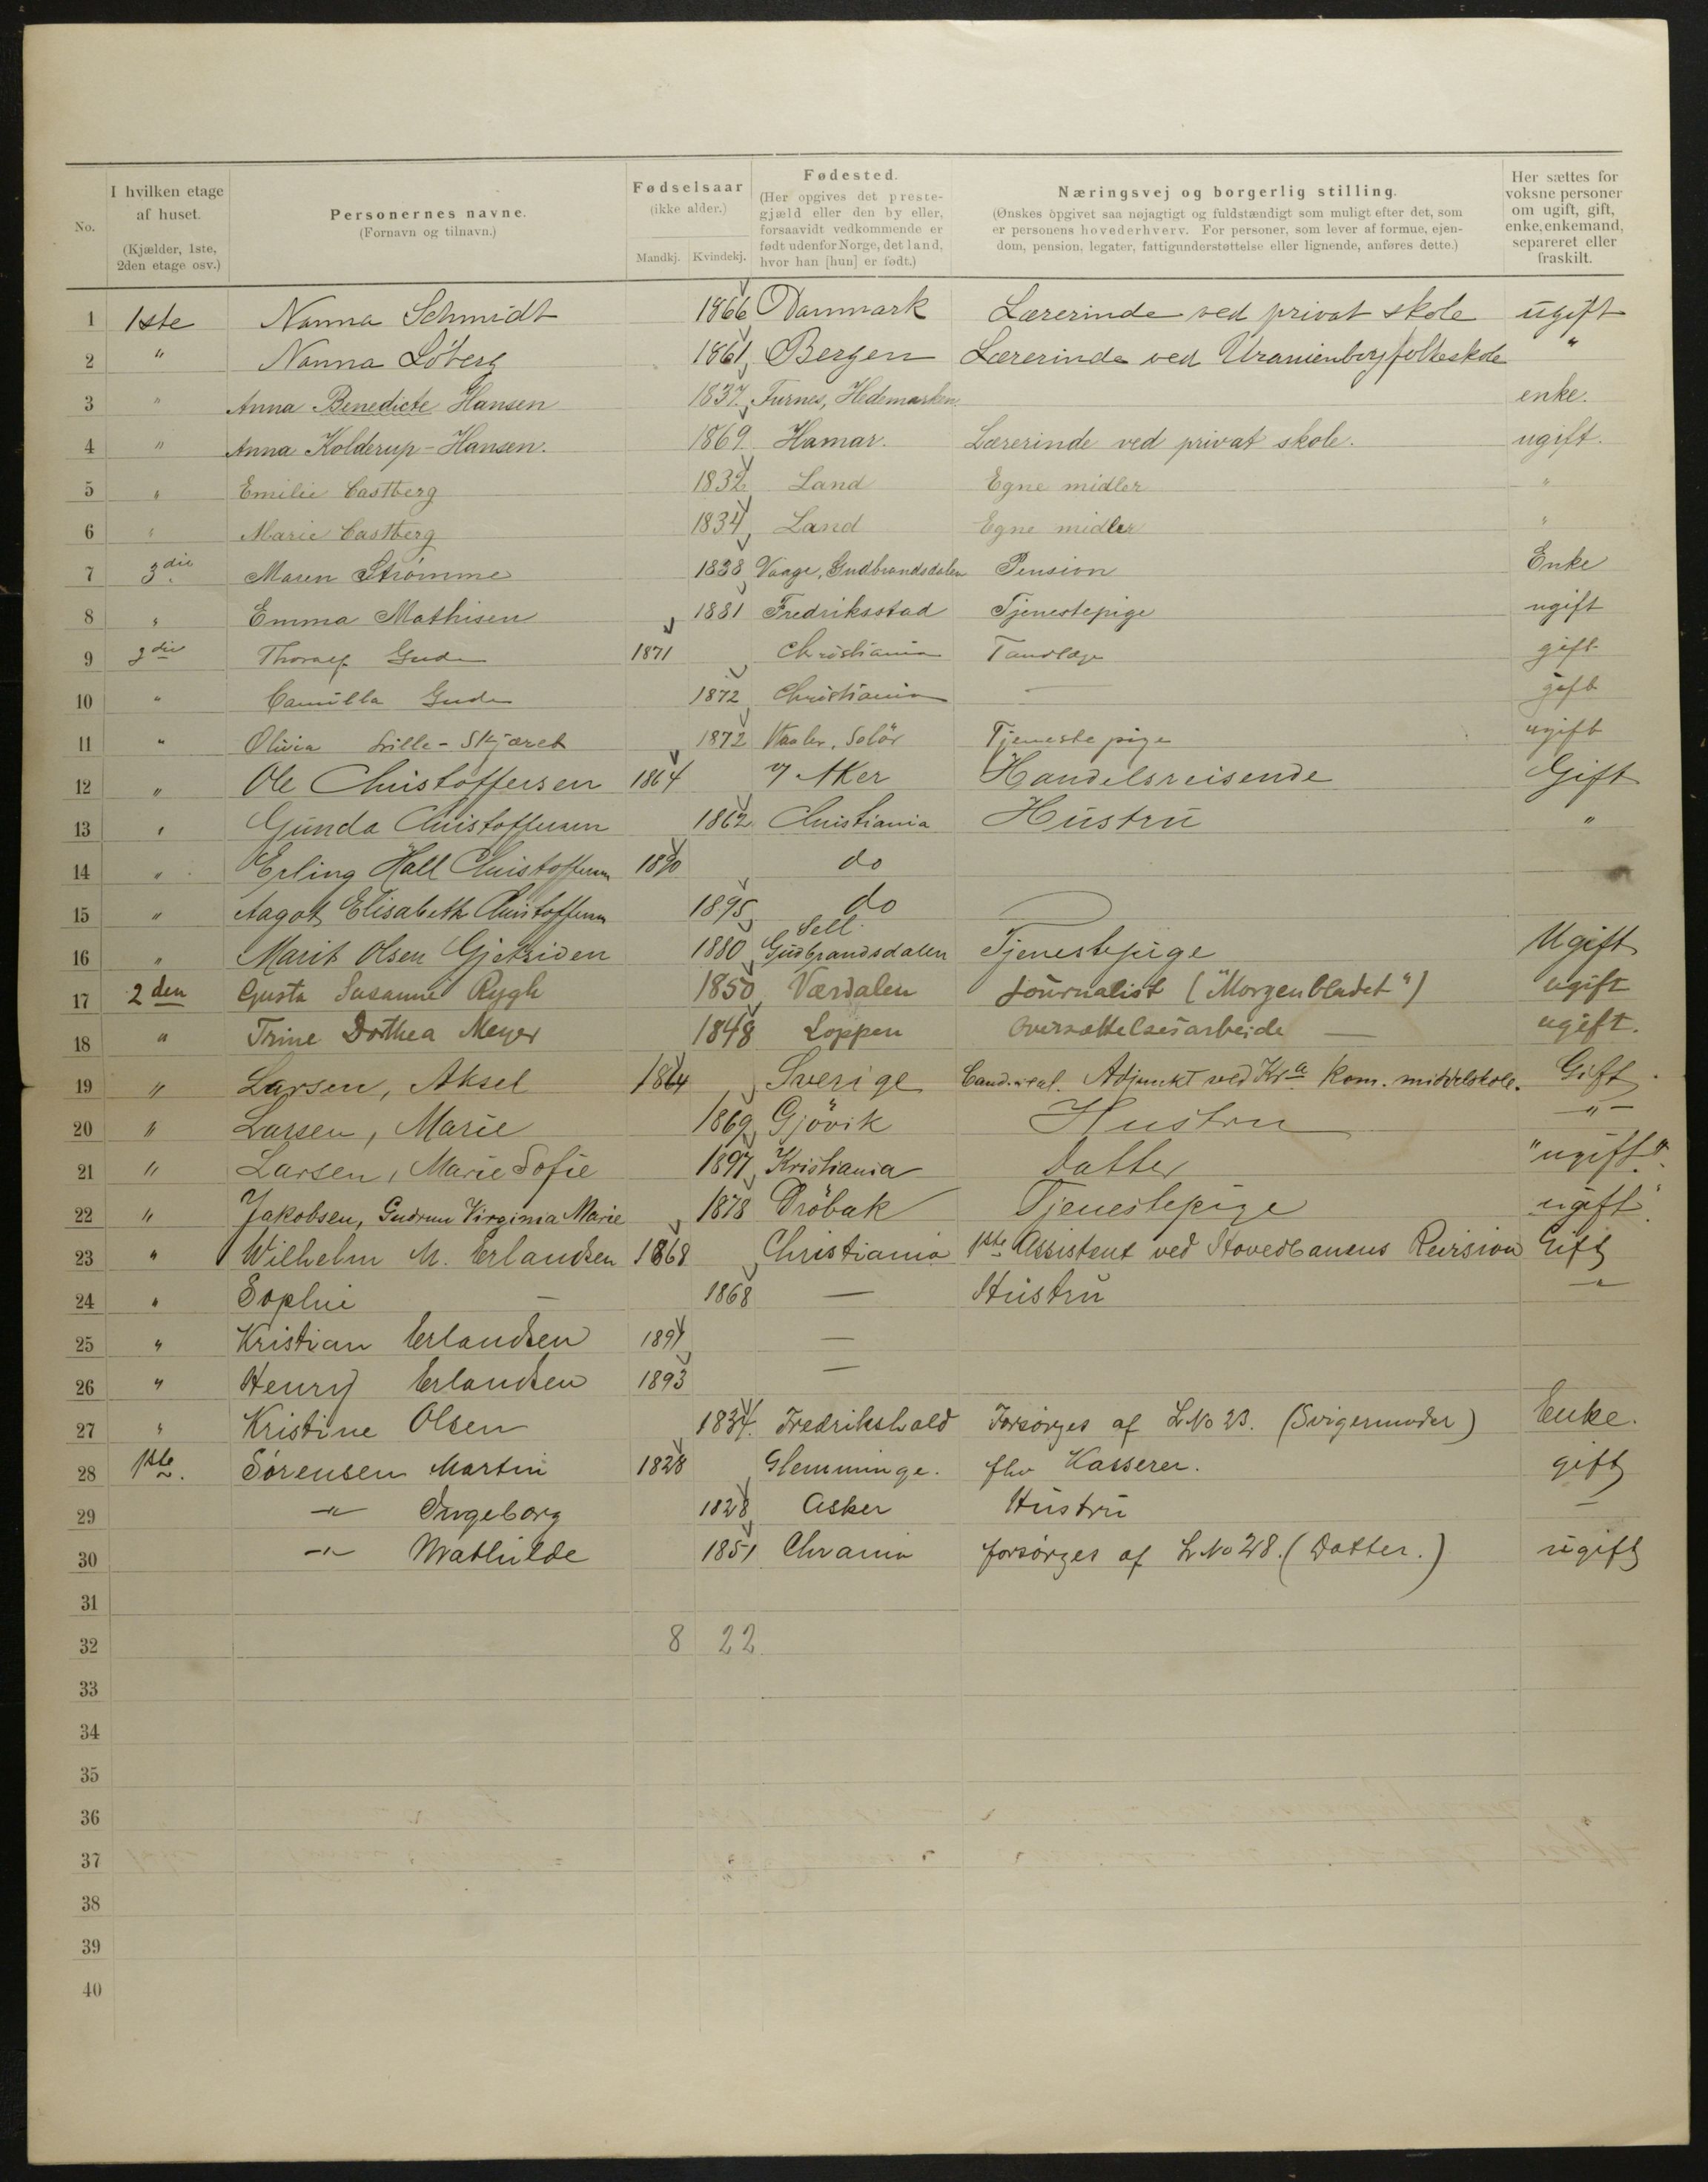 No. | I hvilken etage af huset. (Kjælder, 1ste, 2den etage osv.) | Personernes navne. (Fornavn og tilnavn.) | Fødselsaar (ikke alder.) Mandkj. Kvindekj. | Fødested. (Her opgives det prestegjæld eller den by eller, forsaavidt vedkommende er født udenfor Norge, det land, hvor han [hun] er født.) | Næringsvej og borgerlig stilling. (Ønskes opgivet saa nøjagtigt og fuldstændigt som muligt efter det, som er personens hovederhverv. For personer, som lever af formue, ejendom, pension, legater, fattigunderstøttelse eller lignende, anføres dette.) | Her sættes for voksne personer om ugift, gift, enke, enkemand, separeret eller fraskilt.
1 1ste Nanna Schmidt 1866 Danmark Lærerinde ved privat skole ugift
2 " Nanna Löberg 1861 Bergen Lærerinde ved Uranienborg folkeskole "
3 " Anna Benedicte Hansen 1837 Furnes, Hedemarken enke.
4 " Anna Kolderup-Hansen. 1869 Hamar. Lærerinde ved privat skole. ugift.
5 " Emilie Castberg 1832 Land Egne midler "
6 " Marie Castberg 1834 Land Egne midler "
7 3die Maren Strømme 1838 Vaage, Gudbrandsdalen Pension Enke
8 " Emma Mathisen 1881 Fredriksstad Tjenestepige ugift
9 3die Thoralf Gude 1871 Christiania Tandlæge gift
10 " Camilla Gude 1872 Christiania — gift
11 " Olivia Lille-Skjæret 1872 Vaaler, Solör Tjenestepige ugift
12 " Ole Christoffersen 1864 V Aker Handelsreisende Gift
13 " Gunda Christoffersen 1862 Christiania Hustru "
14 " Erling Hall Christoffersen 1890 do
15 " Aagot Elisabeth Christoffersen 1895 do
16 " Marit Olsen Gjetsiden 1880 Sell. Gudbrandsdalen Tjenestepige Ugift
17 2den Gusta Susanne Rygh 1850 Værdalen Journalist ("Morgenbladet") ugift
18 " Trine Dorthea Meyer 1848 Loppen Oversættelsesarbeide — ugift.
19 " Larsen, Aksel 1864 Sverige Cand. real. Adjunkt ved Kra kom. middelskole. Gift
20 " Larsen, Marie 1869 Gjövik Hustru —"—
21 " Larsen, Marie Sofie 1897 Kristiania Datter "ugift".
22 " Jakobsen, Gudrun Virginia Marie 1878 Dröbak Tjenestepige ugift.
23 " Wilhelm M. Erlandsen 1868 Christiania 1ste Assistent ved Hovedbanens Revision Gift
24 " Sophie — 1868 — Hustru —"
25 " Kristian Erlandsen 1891 —
26 " Henry Erlandsen 1893 —
27 " Kristine Olsen 1834. Fredrikshald Forsørges af LNo 23. (Svigermoder) Enke.
28 1ste. Sørensen Martin 1828 Glemminge. fhv Kasserer. gift
29 —"— Ingeborg 1828 Asker Hustru —
30 —"— Mathilde 1851 Chrania forsørges af LNo 28. (Datter.) ugift
31
32 8 22
33
34
35
36
37
38
39
40